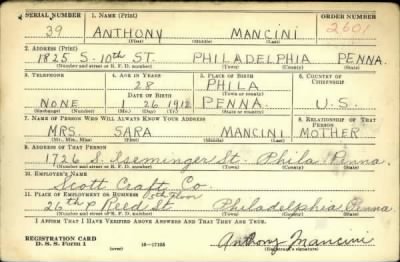 SERIAL NUMBER 1. NAME (Print) ORDER NUMBER
39 ANTHONY MANCINI 2601
(First) (Middle) (Last)
2. ADDRESS (Print)
1825 S. 10th ST. PHILADELPHIA PENNA.
(Number and street or R. F. D. number) (Town) (County) (State)
3. TELEPHONE 4. AGE IN YEARS 5. PLACE OF BIRTH 6. COUNTRY OF CITIZENSHIP
28 PHILA
DATE OF BIRTH (Town or county)
NONE 26 1912 PENNA. U.S.
7. NAME OF PERSON WHO WILL ALWAYS KNOW YOUR ADDRESS 8. RELATIONSHIP OF THAT PERSON
MRS. SARA MANCINI MOTHER
(Mr., Mrs., Miss) (First) (Middle) (Last)
9. ADDRESS OF THAT PERSON
1726 S. Iseminger St. Phila. Penna.
(Number and street or R. F. D. number) (Town) (County) (State)
10. EMPLOYER'S NAME
Scott Craft Co.
11. PLACE OF EMPLOYMENT OR BUSINESS 5th floor
26th & Reed St Philadelphia Penna
(Number and street or R. F. D. number) (Town) (County) (State)
I AFFIRM THAT I HAVE VERIFIED ABOVE ANSWERS AND THAT THEY ARE TRUE.
REGISTRATION CARD
D. S. S. Form 1 (over) 16—17105 Anthony Mancini
(Registrant's signature)